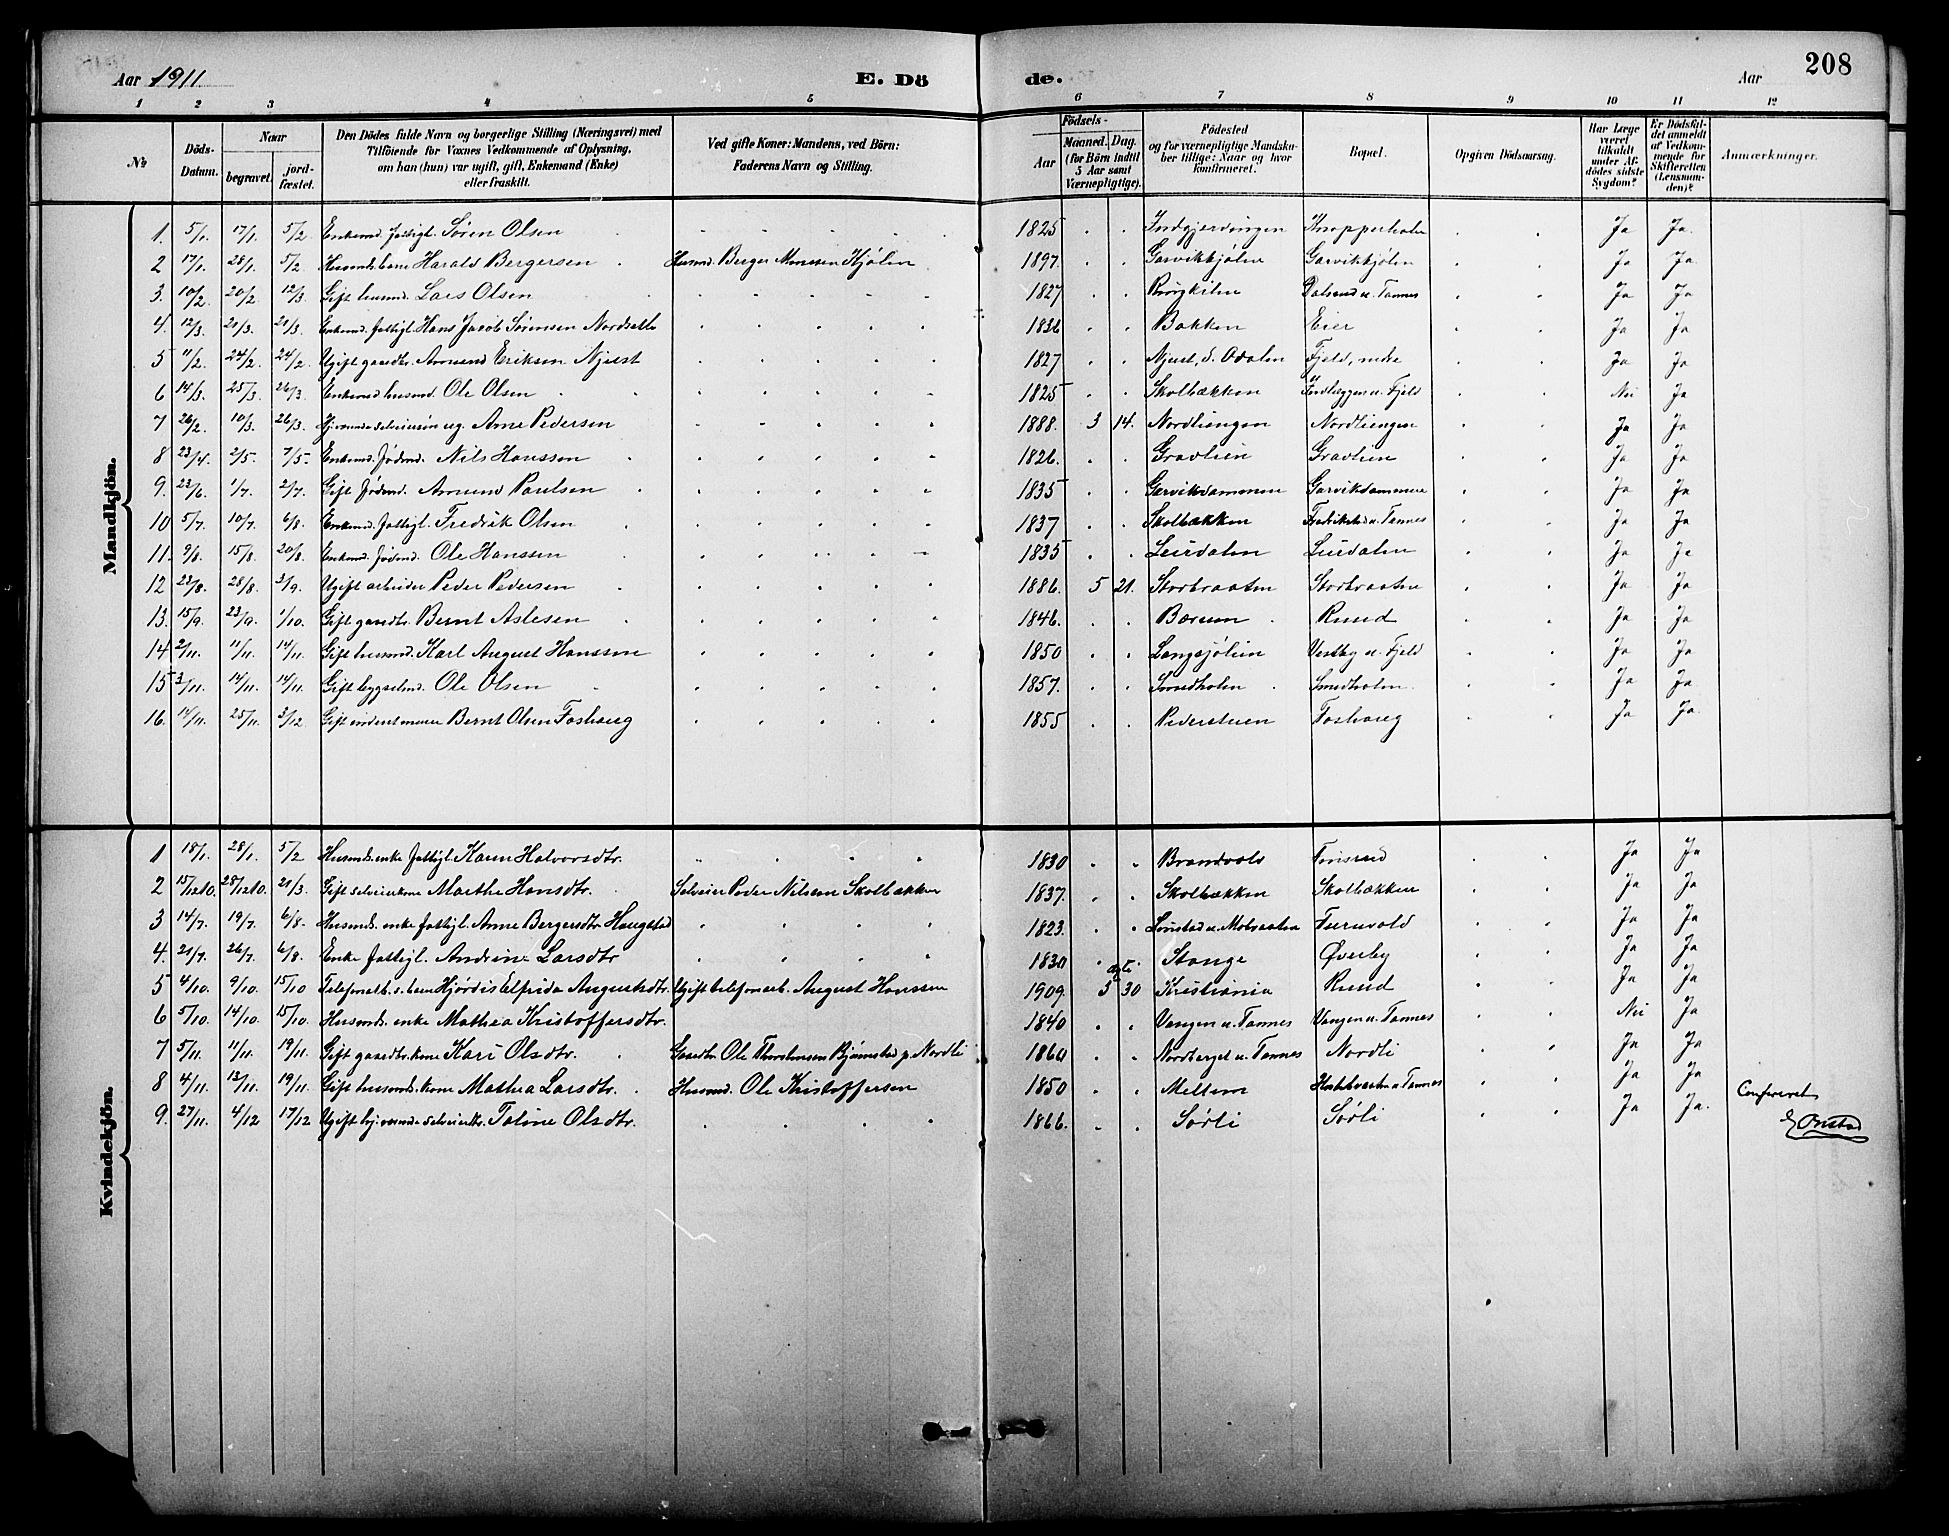 Aar 1911 E. Dö de. Aar 208
1 2 3 4 5 6 7 8 9 10 11 12
№ Döds-Datum. Naar begravet. jord-fæstet. Den Dödes fulde Navn og borgerlige Stilling (Næringsvei) med Tilföiende for Voxnes Vedkommende af Oplysning, om han (hun) var ugift, gift, Enkemand (Enke) eller fraskilt. Ved gifte Koner: Mandens, ved Börn: Faderens Navn og Stilling. Födsels- Aar Maaned. Dag. (for Börn indtil 5 Aar samt Værnepligtige). Födested og for værnepligtige Mandskaber tillige: Naar og hvor konfirmeret. Bopæl. Opgiven Dödsaarsag. Har Læge været tilkaldt under Afdödes sidste Sygdom? Er Dödsfaldet anmeldt af Vedkommende for Skifteretten (Lensmanden)? Anmærkninger.
Mandkjön.
1. 5/1. 17/1. 5/2. Enkemd. fattigl. Søren Olsen 1825 Knapperholen Ja Ja.
2 17/1. 28/1. 5/2 Harald Bergersen Husmd. Berger Monssen Kjølen 1897. Garvikkjølen Garvikkjølen Ja Ja.
3. 10/2. 20/2 12/3. Gift husmd. Lars Olsen 1827 Ja Ja
4. 12/3. 21/3. 21/3. Enkemd. fattigl. Hans Jacob Sørensen Nordsetle 1836 Bakken Eier Ja Ja
5 11/2 24/2. 24/2. Ugift gaardbr. Amund Eriksen Njust 1827 Njust, S. Odalen Fjeld, nedre Ja Ja
6 14/3. 25/3. 26/3. Enkemd husmd. Ole Olsen 1825 Skolbækken Nei Ja
7 26/2. 10/3. 26/3. Arne Pedersen 1888. 3 14. Nordliengen Nordliengen Ja Ja
8 23/4. 2/5. 7/5. Enkemd. Nils Hanssen 1826. Gravlien Gravlien Ja Ja
9. 22/6. 1/7. 2/7. Gift Amund Paulsen 1835 Garvikdammen Garvikdammen Ja Ja
10 5/7. 10/7. 6/8. Enkemd. fattigl. Fredrik Olsen 1837 Skolbækken Fredrikshei u. Tannes Ja Ja
11. 9/8. 15/8. 20/8. Enkemd. Ole Hanssen 1835 Leirdalen Leirdalen Ja Ja
12 23/8. 28/8. 3/9. Ugift arbeider Peder Pedersen 1886. 5 21. Storbraaten Storbraaten Ja Ja
13. 15/9. 23/9. 1/10. Gift gaardbr. Bernt Aslesen 1846. Bærum Ruud Ja Ja
14 2/11. 11/11. 14/11. Gift husmd. Karl August Hanssen 1850 Langsjølien Vestby u. Fjeld Ja Ja
15 3/11. 14/11. 14/11. Gift bygselmd. Ole Olsen 1857. Smedholen Smedholen Ja Ja
16. 14/11. 25/11. 3/12 Gift Bernt Olsen Foshaug 1855 Pederstuen Foshaug Ja Ja.
Kvindekjön.
1 18/1. 28/1. 5/2 Husmds. enke fattigl. Karen Halvorsdtr. 1830 Brandvold Ja Ja
2 15/12 10. 28/12 10. 21/3. Gift selveierkone Marthe Hansdtr. Selveier Peder Nilssen Skolbækken 1837. Skolbækken Skolbækken Ja Ja
3 14/7. 19/7. 6/8. Husmds. enke fattigl. Anne Bergersdtr. Haugstad 1823. Furuvold Ja Ja
4. 21/7. 26/7. 6/8. Enke fattigl. Andrine Larsdtr 1830 Stange Øverby Ja Ja
5 4/10. 9/10. 15/10 Telefonarb.s barn Hjørdis Elfrida Augustsdtr. Ugift telefonarb. August Hanssen 1909. 5 30 Kristiania Ruud Ja Ja
6 5/10. 14/10. 15/10. Husmds. enke Mathea Kristoffersdtr. 1840 Vangen u. Tannes Vangen u. Tannes Nei Ja
7 5/11. 11/11. 19/11. Gift gaardbr.kone Kari Olsdtr. Gaardbr Ole Thorstensen Bjørnstad p. Nordli 1860 Nordberget u. Tannes Nordli Ja Ja
8 4/11. 13/11. 19/11. Gift husmds.kone Mathea Larsdtr. Husmd. Ole Kristoffersen 1850 Meltem Ja Ja
9. 27/11. 4/12 17/12 Ugift Toline Olsdtr. 1866. Sørli Sørli Ja Ja.
Confereret
Onstad